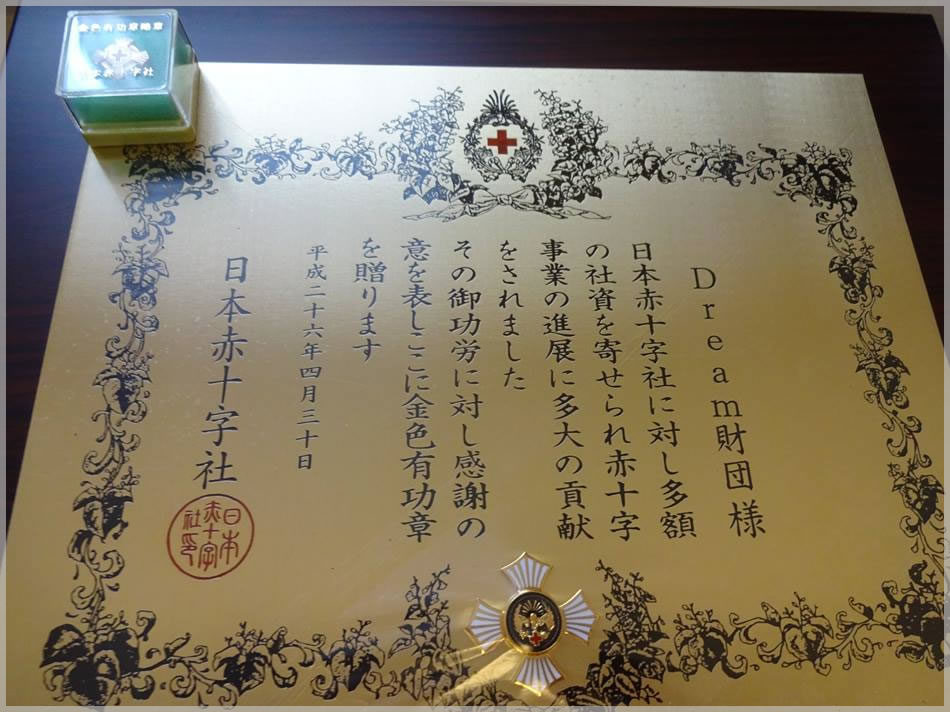 金色有功章略章
日本赤十字社
Dream財団様
日本赤十字社に対し多額
の社資を寄せられ赤十字
事業の進展に多大の貢献
をされました
その御功労に対し感謝の
意を表しここに金色有功章
を贈ります
平成二十六年四月三十日
日本赤十字社
日本
赤十字
社印